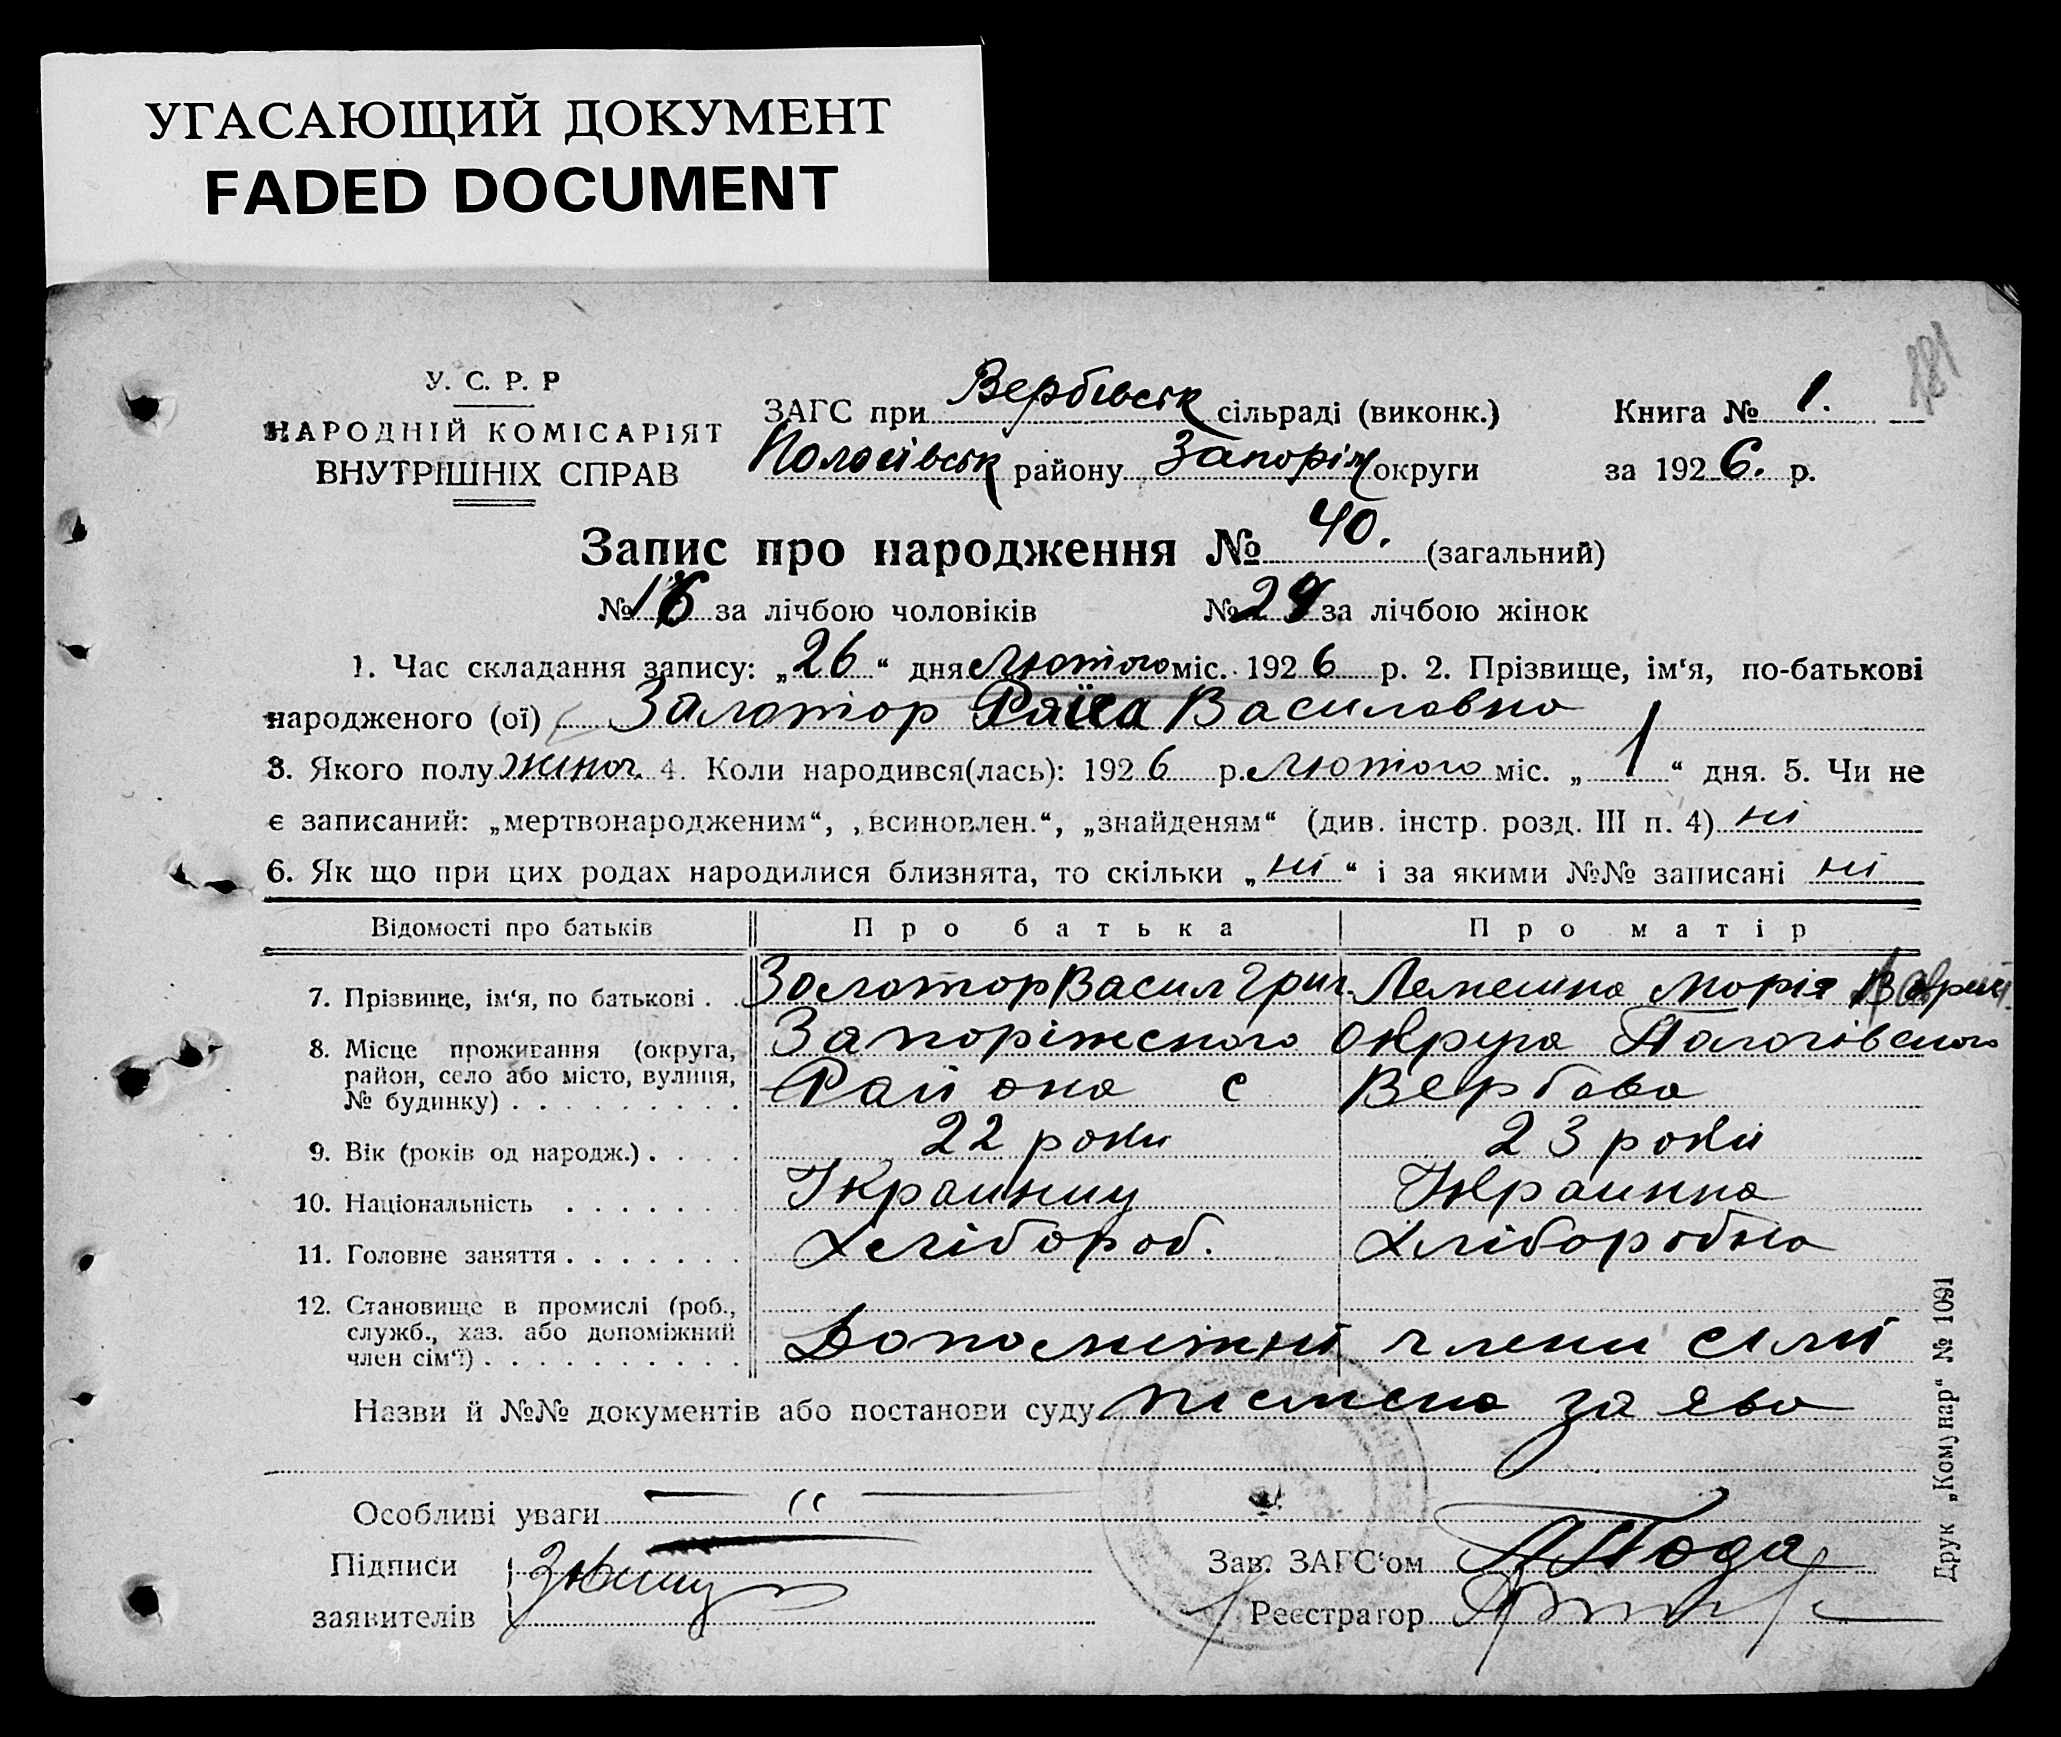 УГАСАЮЩИЙ ДОКУМЕНТ
FADED DOCUMENT
181
У. С. Р. Р
НАРОДНІЙ КОМІСАРІЯТ
ВНУТРІШНІХ СПРАВ
ЗАГС при Вербівськ сільраді (виконк.)
Пологівськ району Запоріж округи
Книга № 1.
за 1926. р.
Запис про народження № 40. (загальний)
№ 16 за лічбою чоловіків № 24 за лічбою жінок
1. Час складання запису: „26“ дня Лютого міс. 1926 р. 2. Прізвище, ім‘я, по-батькові
народженого (ої) Залотор Раїса Василовна
3. Якого полу жіноч. 4. Коли народився(лась): 1926 р. Лютого міс. „1“ дня. 5. Чи не
є записаний: „мертвонародженим“, „всиновлен.“, „знайденям“ (див. інстр. розд. III п. 4) ні
6. Як що при цих родах народилися близнята, то скільки „ні“ і за якими №№ записані ні
Відомості про батьків Про батька Про матір
7. Прізвище, ім‘я, по батькові . . Золотор Васил Григ. Лемешка Морія
8. Місце проживання (округа, район, село або місто, вулиця, № будинку) . . . . . . . . . Запоріжского Округа Пологівского
Района с Вербова
9. Вік (років од народж.) . . . . 22 роки 23 роки
10. Національність . . . . . . . Украинец Украинка
11. Головне заняття . . . . . . . Хлібороб. Хліборобка
12. Становище в промислі (роб., служб., хаз. або допоміжний член сім‘ї) . . . . . . . . . . Допоміжні члени сімї
Назви й №№ документів або постанови суду писмена заява
Особливі уваги — ‘‘ —
Підписи
заявителів
Зав. ЗАГС‘ом
Реєстратор
Друк „Комунар“ № 1091